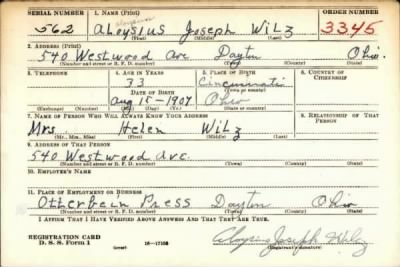 SERIAL NUMBER 1. NAME (Print) ORDER NUMBER
562 Aloysius Joseph Wilz 3345
(First) (Middle) (Last)
2. ADDRESS (Print)
540 Westwood Ave Dayton Ohio
(Number and street or R. F. D. number) (Town) (County) (State)
3. TELEPHONE 4. AGE IN YEARS 5. PLACE OF BIRTH 6. COUNTRY OF CITIZENSHIP
33 Cincinnati
DATE OF BIRTH (Town or county)
Aug 15-1907 Ohio
(Exchange) (Number) (Mo.) (Day) (Yr.) (State or country)
7. NAME OF PERSON WHO WILL ALWAYS KNOW YOUR ADDRESS 8. RELATIONSHIP OF THAT PERSON
Mrs Helen Wilz
(Mr., Mrs., Miss) (First) (Middle) (Last)
9. ADDRESS OF THAT PERSON
540 Westwood Ave.
(Number and street or R. F. D. number) (Town) (County) (State)
10. EMPLOYER'S NAME
11. PLACE OF EMPLOYMENT OR BUSINESS
Otterbein Press Dayton Ohio
(Number and street or R. F. D. number) (Town) (County) (State)
I AFFIRM THAT I HAVE VERIFIED ABOVE ANSWERS AND THAT THEY ARE TRUE.
REGISTRATION CARD
D. S. S. Form 1 (over) 16-17105 Aloysius Joseph Wilz
(Registrant's signature)